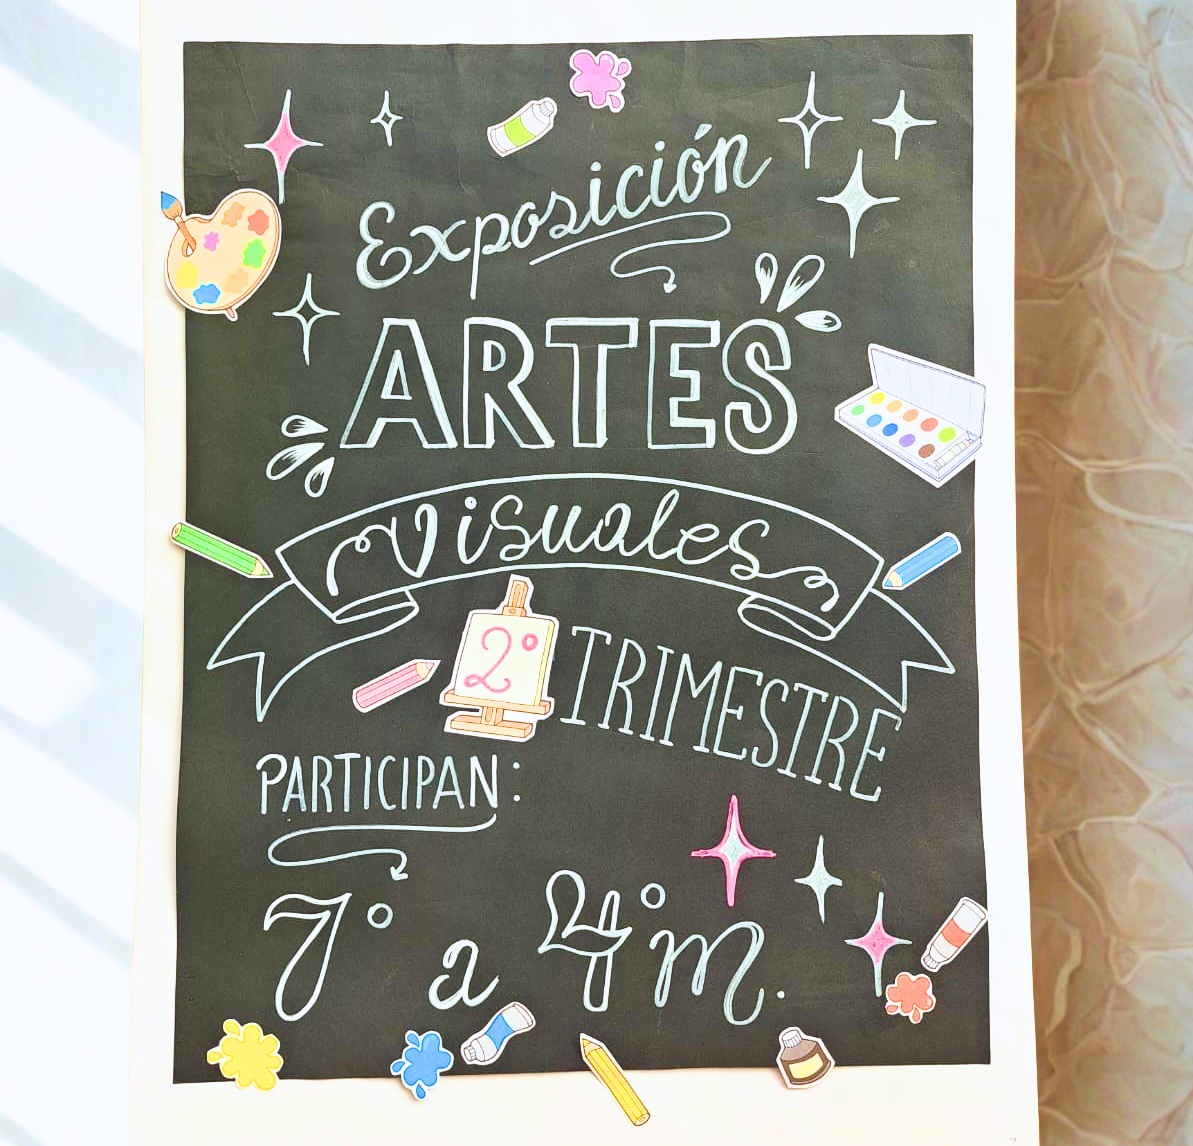 Exposición
ARTES
Visuales
2° TRIMESTRE
PARTICIPAN:
7° a 4° m.